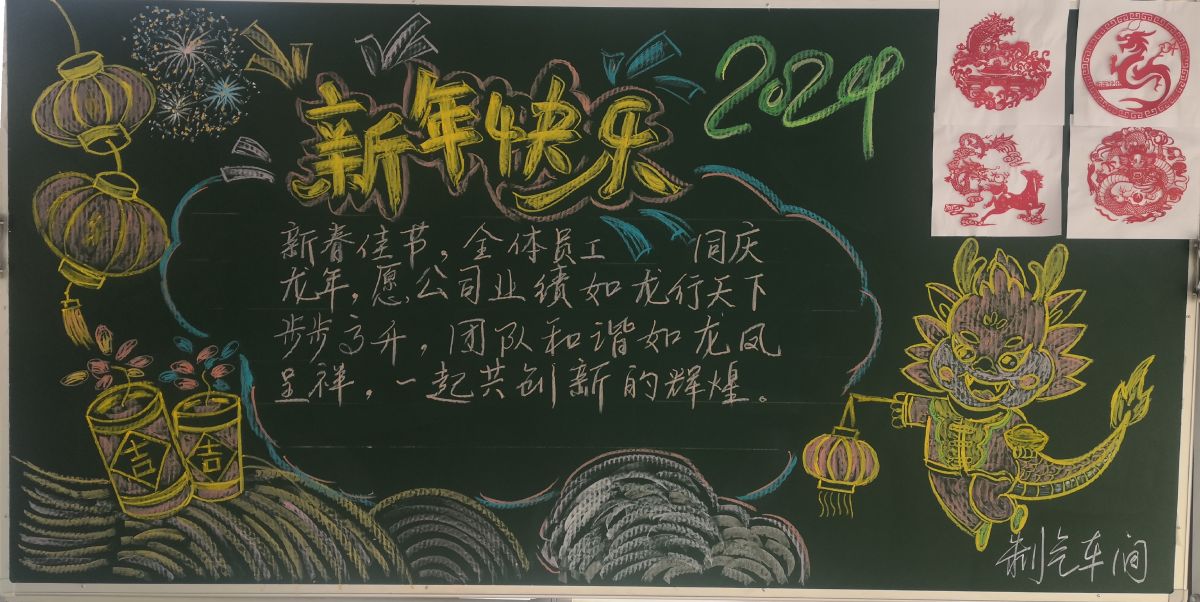 新年快乐
2024
新春佳节，全体员工 同庆
龙年，愿公司业绩如龙行天下
步步高升，团队和谐如龙凤
呈祥，一起共创新的辉煌。
吉
吉
制气车间